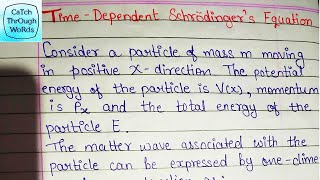 CaTch
ThrOugh
WorDs
Time-Dependent Schrödinger's Equation
Consider a particle of mass m moving
in positive X-direction. The potential
energy of the particle is V(x), momentum
is Px and the total energy of the
particle E.
The matter wave associated with the
particle can be expressed by one-dime